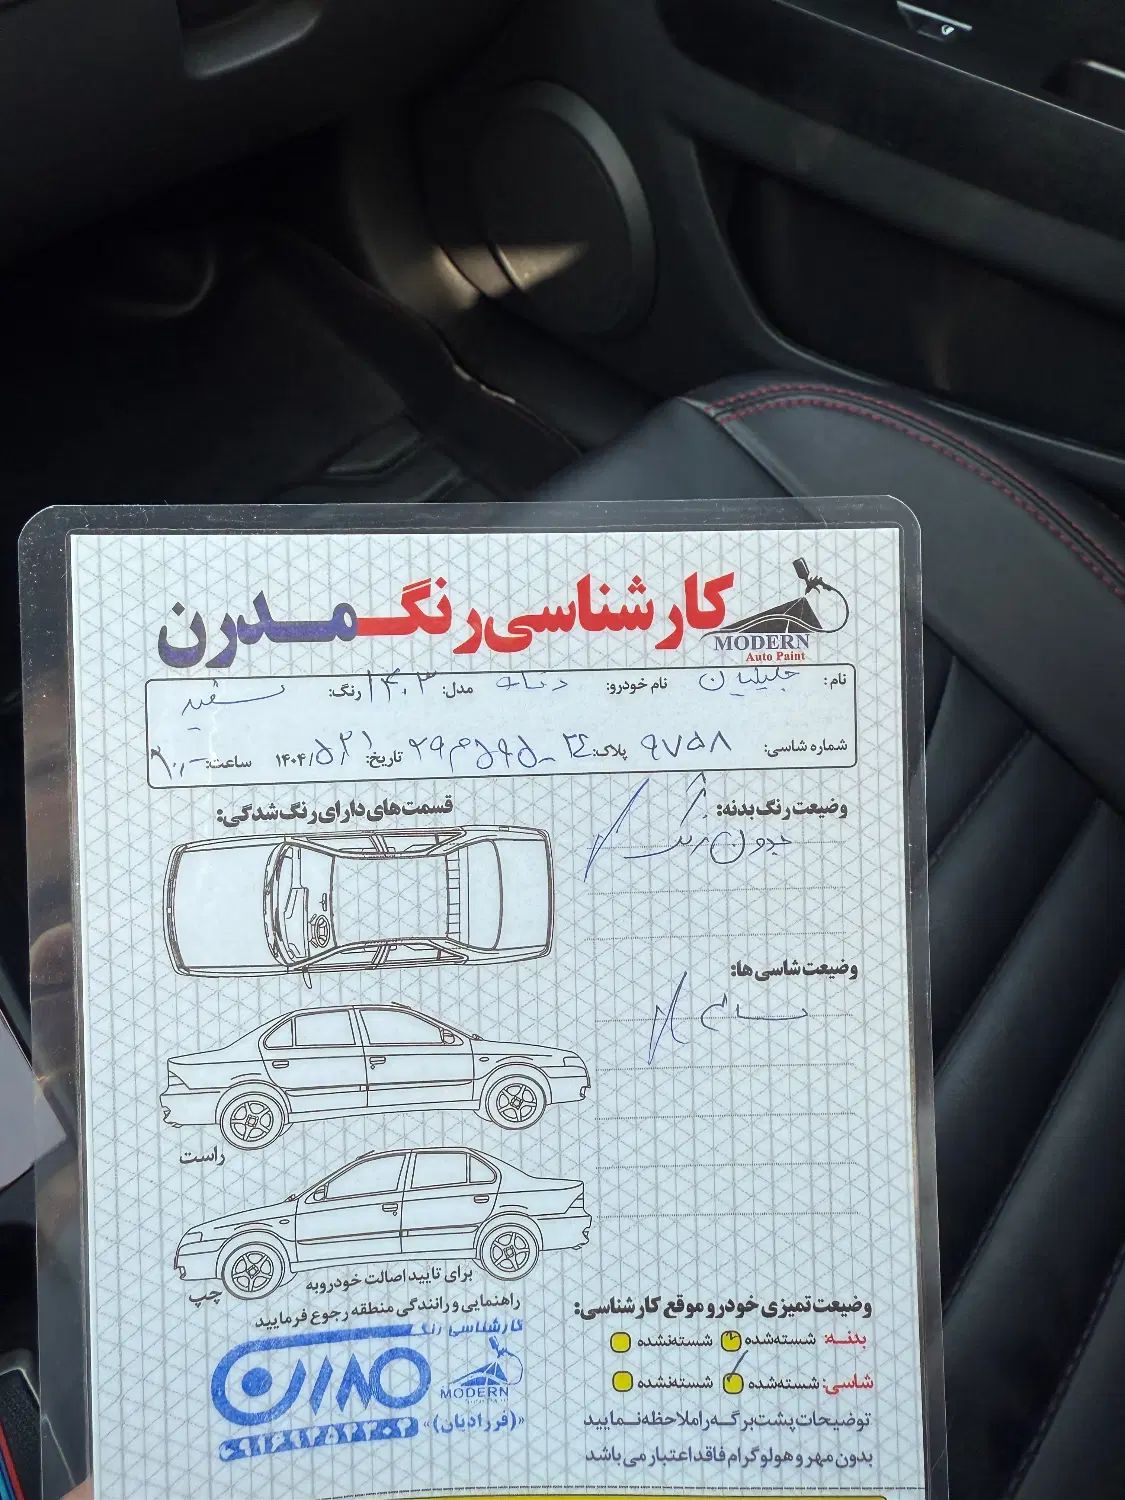 کارشناسی رنگ مدرن
MODERN
Auto Paint
نام: جلیلیان نام خودرو: دنا مدل: ۱۴۰۳ رنگ: سفید
شماره شاسی: ۹۷۵۸ پلاک: تاریخ: ۱۴۰۴/۵/۲۱ ساعت:
وضعیت رنگ بدنه:
بدون رنگ
قسمت‌های دارای رنگ شدگی:
وضعیت شاسی ها:
سالم
راست
چپ
برای تایید اصالت خودرو به
راهنمایی و رانندگی منطقه رجوع فرمایید
کارشناسی رنگ
مدرن
MODERN
«(فرزادیان)»
وضعیت تمیزی خودرو موقع کارشناسی:
بدنه: شسته‌شده شسته‌نشده
شاسی: شسته‌شده شسته‌نشده
توضیحات پشت برگه را ملاحظه نمایید
بدون مهر و هولوگرام فاقد اعتبار می باشد